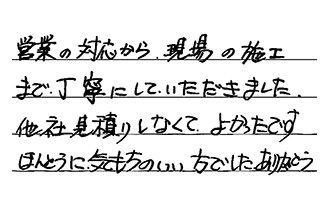 営業の対応から、現場の施工
まで、丁寧にして、いただきました、
他社見積りしなくて、よかったです
ほんとうに、気もちのいい方でした、ありがとう